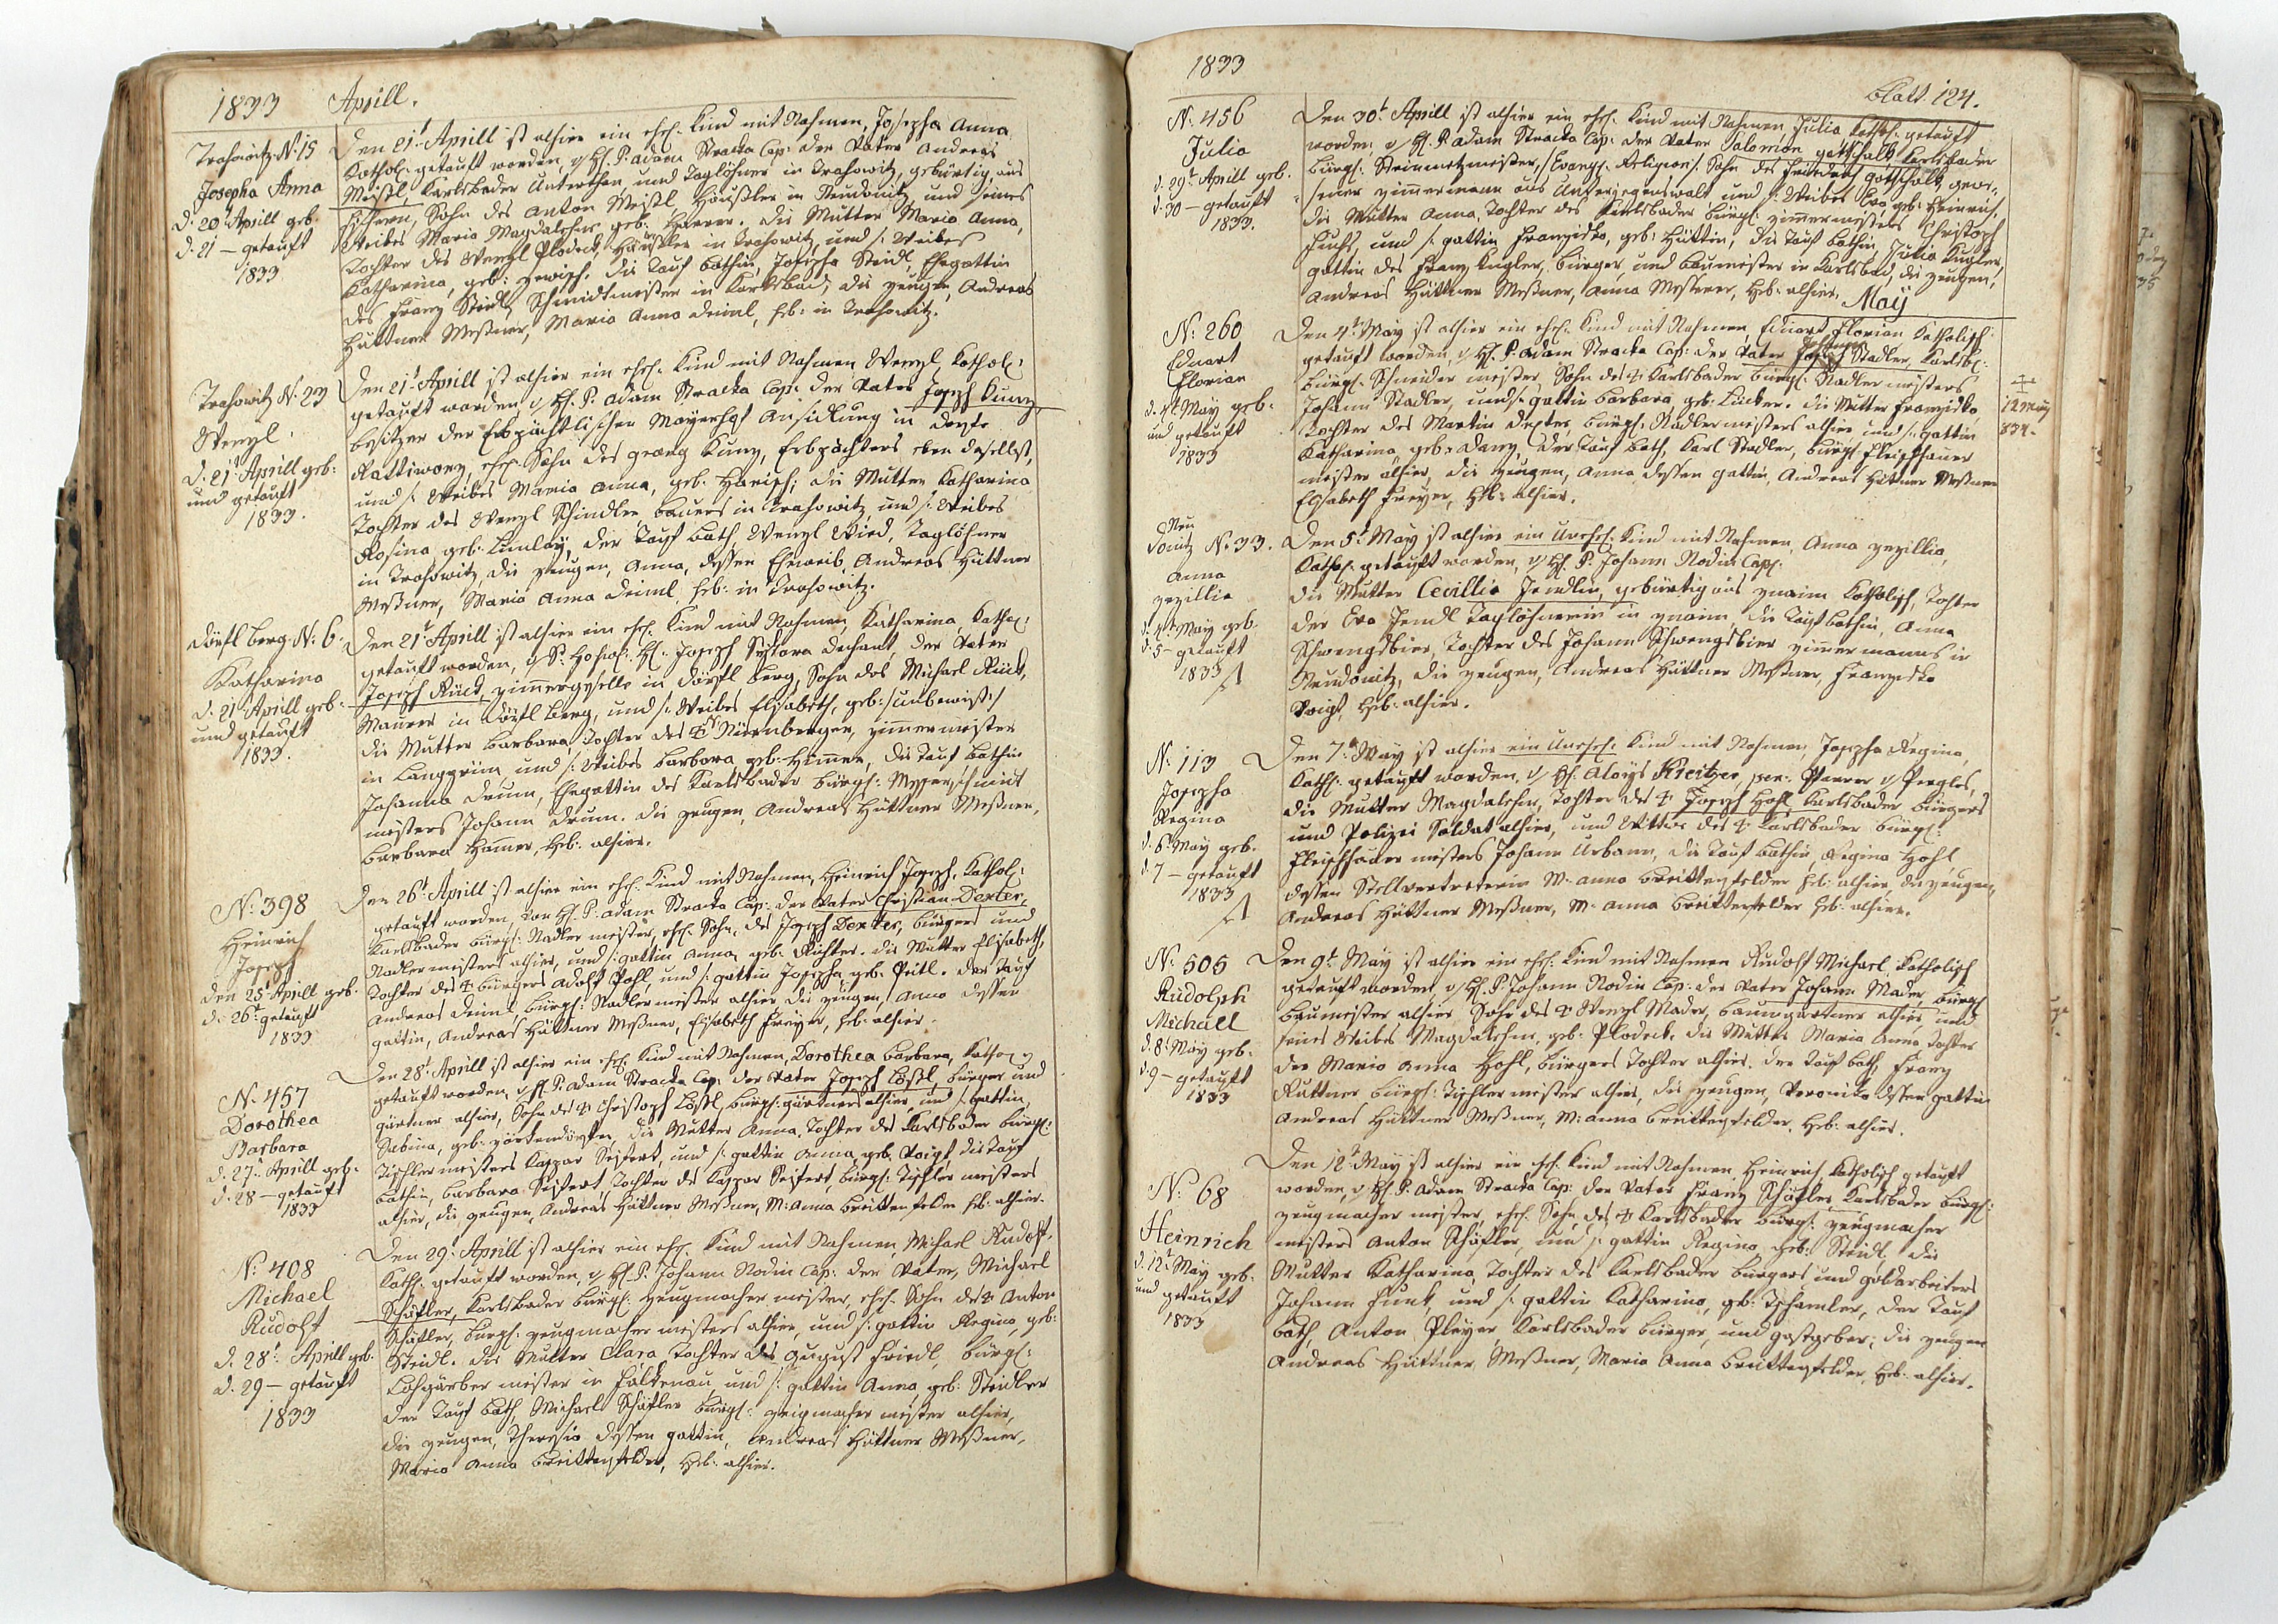 1833 Aprill.
Trahowitz N: 15
Josepha Anna
d. 20 Aprill geb.
d. 21 – getauft
1833
Den 21t Aprill ist alhier ein ehel. Kind mit Nahmen, Josepha Anna
Kathol: getauft worden, v H. P. Adam Stracka Cap: der Vater Andreas
Meißl, Karlsbader Unterthan, und Taglöhner in Trahowitz, gebürtig aus
Fischern, Sohn des Anton Meißl, Häußler in Neudonitz, und seines
Weibes Maria Magdalehn, geb. . Die Mutter Maria Anna,
Tochter des Wenzl Plodeck, Häusler in Trahowitz, und s: Weibes
Katharina, geb: . die Tauf Bathin, Josepha Steidl, Ehegattin
des Franz Steidl, Schmidtmeister in Karlsbad, die zeugen, Andreas
Hüttner Meßner, Maria Anna Deiml, heb: in Trahowitz.
Trahowitz N: 23
Wenzl.
d. 21t Aprill geb:
und getauft
1833.
Den 21t Aprill ist alhier ein ehel. Kind mit Nahmen Wenzl, Kathol:
getauft worden, v H. P. Adam Stracka Cap: der Vater Joseph Kunz,
besitzer der Erbpächtlischen Mayerhofs Ansidlung in Dorfe
Rattiworz, ehel. Sohn des Georg Kunz, Erbpächters eben daselbst,
und s: Weibes Maria Anna, geb. ; die Mutter Katharina
Tochter des Wenzl Schindler, bauers in Trahowitz, und s: Weibes
Rosina, geb: , der Tauf Bath, Wenzl Wied, Taglöhner
in Trahowitz, die zeugen, Anna, dessen Eheweib, Andreas Hüttner
Meßner, Maria Anna Deiml, heb: in Trahowitz.
Dörfl Berg. N: 6.
Katharina
d. 21 Aprill geb:
und getauft
1833.
Den 21t Aprill ist alhier ein ehel. Kind mit Nahmen, Katharina, Kathol:
getauft worden, v Sr: Hochw: H. Joseph Sykora Dechant, der Vater
Joseph Rüed, zimmergeselle in Dörfl Berg, Sohn des Michael Rüed,
Maurer in Dörfl Berg, und s: Weibes Elisabeth, geb: /unbewust/
die Mutter Barbara, Tochter des ✠ Nürnberger, zimmermeister
in Langgrün, und s: Weibes Barbara, geb: Himmer, die Tauf Bathin
Johanna Drum, Ehegattin des Karlsbader bürgl: Messerschmiet
meisters Johann Drum. die zeugen, Andreas Hüttner Meßner,
Barbara Hammer, heb: alhier.
N: 398
Heinrich
Joseph
den 25t Aprill geb.
d. 26t getauft
1833
Den 26t Aprill ist alhier ein ehel. Kind mit Nahmen, Heinrich Joseph, Kathol:
getauft worden, von H. P. Adam Stracka Cap: der Vater Christian Dexter,
Karlsbader bürgl: Nadler meister, ehel. Sohn, des Joseph Dexter, bürgers und
Nadler meisters alhier, und s: gattin Anna, geb: Richter. die Mutter Elisabeth,
Tochter des ✠ bürgers Adolf Pohl, und s: gattin Josepha geb: . der Tauf
Andreas Deiml, bürgl: Nadlermeister alhier, die zeugen, Anna dessen
gattin, Andreas Hüttner Meßner, Elisabeth Freyer, heb: alhier.
N: 457
Dorothea
Barbara
d. 27t Aprill geb.
d. 28 – getauft
1833
Den 28t Aprill ist alhier ein ehel. Kind mit Nahmen, Dorothea Barbara, Kathol:
getauft worden, v H. P. Adam Stracka Cap. der Vater Joseph Lößl, bürger und
gärtner alhier, Sohn des ✠ Christoph Lößl, bürgl: gärtners alhier, und s: gattin,
Sabina, geb: , die Mutter Anna, Tochter des Karlsbader bürgl:
Tischler meisters Kaspar Seifert, und s: gattin Anna, geb. Voigt, die Tauf
Bathin, Barbara Seifert, Tochter des Kaspar Seifert, bürgl: Tischler meisters
alhier, die zeugen, Andreas Hüttner Meßner, M: Anna Breittenfelder heb: alhier.
N: 408
Michael
Rudolf
d. 28t. Aprill geb.
d. 29 – getauft
1833
Den 29t Aprill ist alhier ein ehel. Kind mit Nahmen, Michael Rudolf,
Kath: getauft worden, v H. P. Johann Nodin Cap: der Vater, Michael
Schäfler, Karlsbader bürgl: zeugmacher meister, ehel. Sohn des ✠ Anton
Schäfler, bürgl: zeugmacher meisters alhier, und s: gattin Regina, geb:
Steidl. die Mutter Clara Tochter des August Friedl, bürgl:
Lohgärber meister in Falkenau, und s: gattin Anna, geb: Steidler
der Tauf Bath, Michael Schäfler bürgl: zeugmacher meister alhier,
die zeugen, Theresia dessen gattin, Andreas Hüttner Meßner,
Maria Anna Breittenfelder, heb: alhier.
1833
blatt. 124.
N: 456
Julia
d. 29t Aprill geb.
d. 30 – getauft
1833.
Den 30t Aprill ist alhier ein ehel. Kind mit Nahmen, Julia, Kathol: getauft
worden, v H. P. Adam Stracka Cap: der Vater Salomon Gottschalk, Karlsbader
bürgl: Steinmetzmeister, /Evang: Religion/ Sohn des Friedrich Gottschalk, gewe-
sener zimmermann aus Unterjegenswalt, und s: Weibes Eva, geb: Heinrich,
die Mutter Anna, Tochter des Karlsbader bürgl: zimmermeisters Christoph
Fuchs, und s: gattin Franziska, geb: Hüttin, die Tauf Bathin, Julia Kugler,
gattin des Franz Kugler, bürger und Baumeister in Karlsbad, die zeugen,
Andreas Hüttner Meßner, Anna , heb: alhier.
May
N: 260
Eduart
Florian
d. 4t May geb.
und getauft
1833
Den 4t May ist alhier ein ehel. Kind mit Nahmen, Eduart Florian Katholisch
getauft worden, v H. P. Adam Stracka Cap: der Vater Joseph Stadler, Karlsb:
bürgl: Schneider meister, Sohn des ✠ Karlsbader bürgl: Nadler meisters
Johann Stadler, und s: gattin Barbara geb: Lucker. die Mutter Franziska,
Tochter des Martin Dexter, bürgl: Nadler meisters alhier, und s: gattin
Katharina, geb: Danz, der Tauf Bath, Karl Stadler, bürgl: Fleischhauer
meister alhier, die zeugen, Anna, dessen gattin, Andreas Hüttner Meßner
Elisabeth Freyer, heb: alhier.
✠
12 May
834.
Neu
Donitz N: 33.
Anna
Zezillia
d. 4t May geb.
d. 5 – getauft
1833
Den 5t May ist alhier ein Unehel: Kind mit Nahmen, Anna Zezillia,
Kathol: getauft worden, v H. P. Johann Nodin Cap:
die Mutter Cecillia Jendlin, gebürtig aus Znaim Katholisch, Tochter
der Eva Jendl Taglöhnerin in Znaim, die Tauf Bathin, Anna
Schwengsbier, Tochter des Johann Schwengsbier zimmermanns in
Neudonitz, die zeugen, Andreas Hüttner Meßner, Franziska
Voigt, heb: alhier.
N: 113
Josepha
Regina
d. 6t May geb.
d. 7 – getauft
1833
Den 7t May ist alhier ein Unehel. Kind mit Nahmen, Josepha Regina,
Kath: getauft worden, v H. Aloys Kreitzer, pen: Pfarrer v Pergles,
die Mutter Magdalehn, Tochter des ✠ Joseph Hohl, Karlsbader bürgers
und Polizei Soldat alhier, und Wittwe des ✠ Karlsbader bürgl:
Fleischhauer meisters Johann Urbann, die Tauf Bathin, Regina Hohl
dessen Stellvertreterin M: Anna Breittenfelder heb: alhier, die zeugen,
Andreas Hüttner Meßner, M: Anna Breittenfelder heb: alhier.
N: 505
Rudolph
Michaell
d. 8t May geb.
d. 9 – getauft
1833
Den 9t May ist alhier ein ehel. Kind mit Nahmen Rudolf Michael, Katholisch
getauft worden, v H. P. Johann Nodin Cap: der Vater Johann Mader, bürgl
Baumeister alhier, Sohn des ✠ Wenzl Mader, Baumgärtner alhier, und
seines Weibes Magdalehn, geb: Plodeck. die Mutter Maria Anna Tochter
der Maria Anna Hohl, bürgers Tochter alhier. der Tauf Bath, Franz
Ruttner bürgl: Tischler meister alhier, die zeugen, Veronika dessen gattin
Andreas Hüttner Meßner, M: Anna Breittenfelder, heb: alhier.
N: 68
Heinrich
d. 12t May geb.
und getauft
1833
Den 12t May ist alhier ein ehel. Kind mit Nahmen, Heinrich, Katholisch getauft
worden, v H. P. Adam Stracka Cap: der Vater Franz Schäfler, Karlsbader bürgl:
zeugmacher meister, ehel. Sohn, des ✠ Karlsbader bürgl: zeugmacher
meisters Anton Schäfler, und s: gattin Regina, geb: Steidl, die
Mutter Katharina, Tochter des Karlsbader bürgers und goldarbeiters
Johann Funk, und s: gattin Katharina, geb: Tschamler, der Tauf
Bath, Anton Pleyer, Karlsbader bürger, und gastgeber; die zeugen
Andreas Hüttner, Meßner, Maria Anna Breittenfelder, heb: alhier.